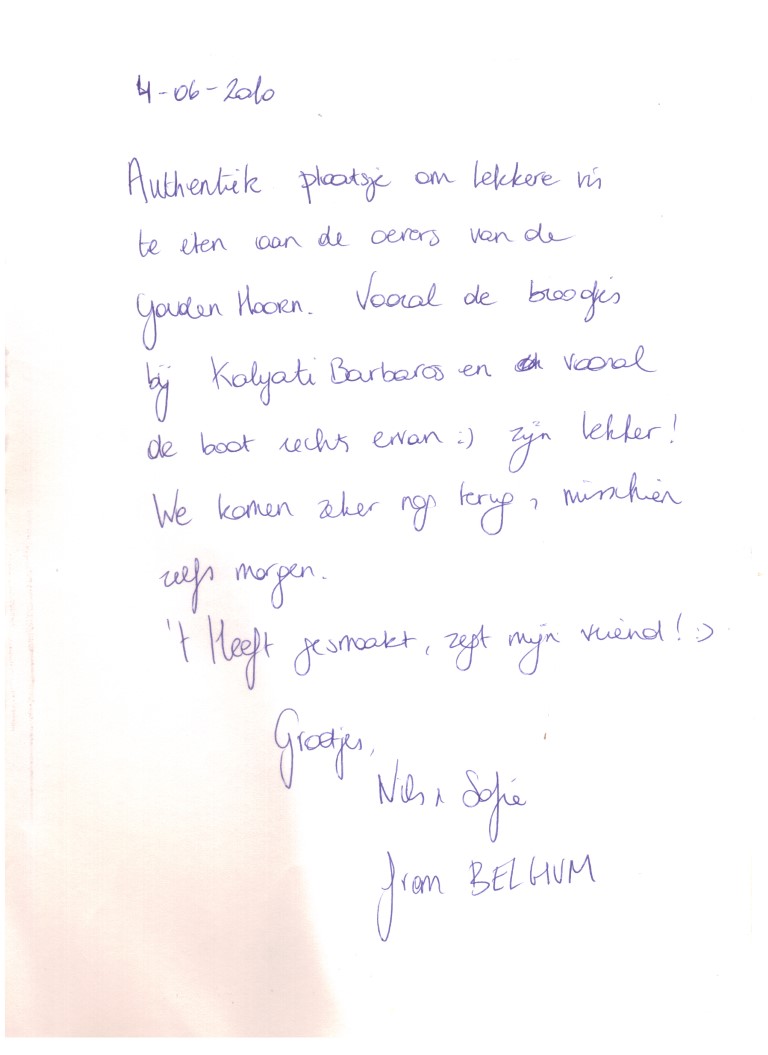 4-06-2010
Authentiek plaatsje om lekkere vis
te eten aan de oevers van de
Gouden Hoorn. Vooral de broodjes
bij Kalyati Barbaros en vooral
de boot rechts ervan :) zijn lekker!
We komen zeker nog terug, misschien
zelfs morgen.
't Heeft gesmaakt, zegt mijn vriend! :)
Groetjes,
Nils & Sofie
from BELGIUM